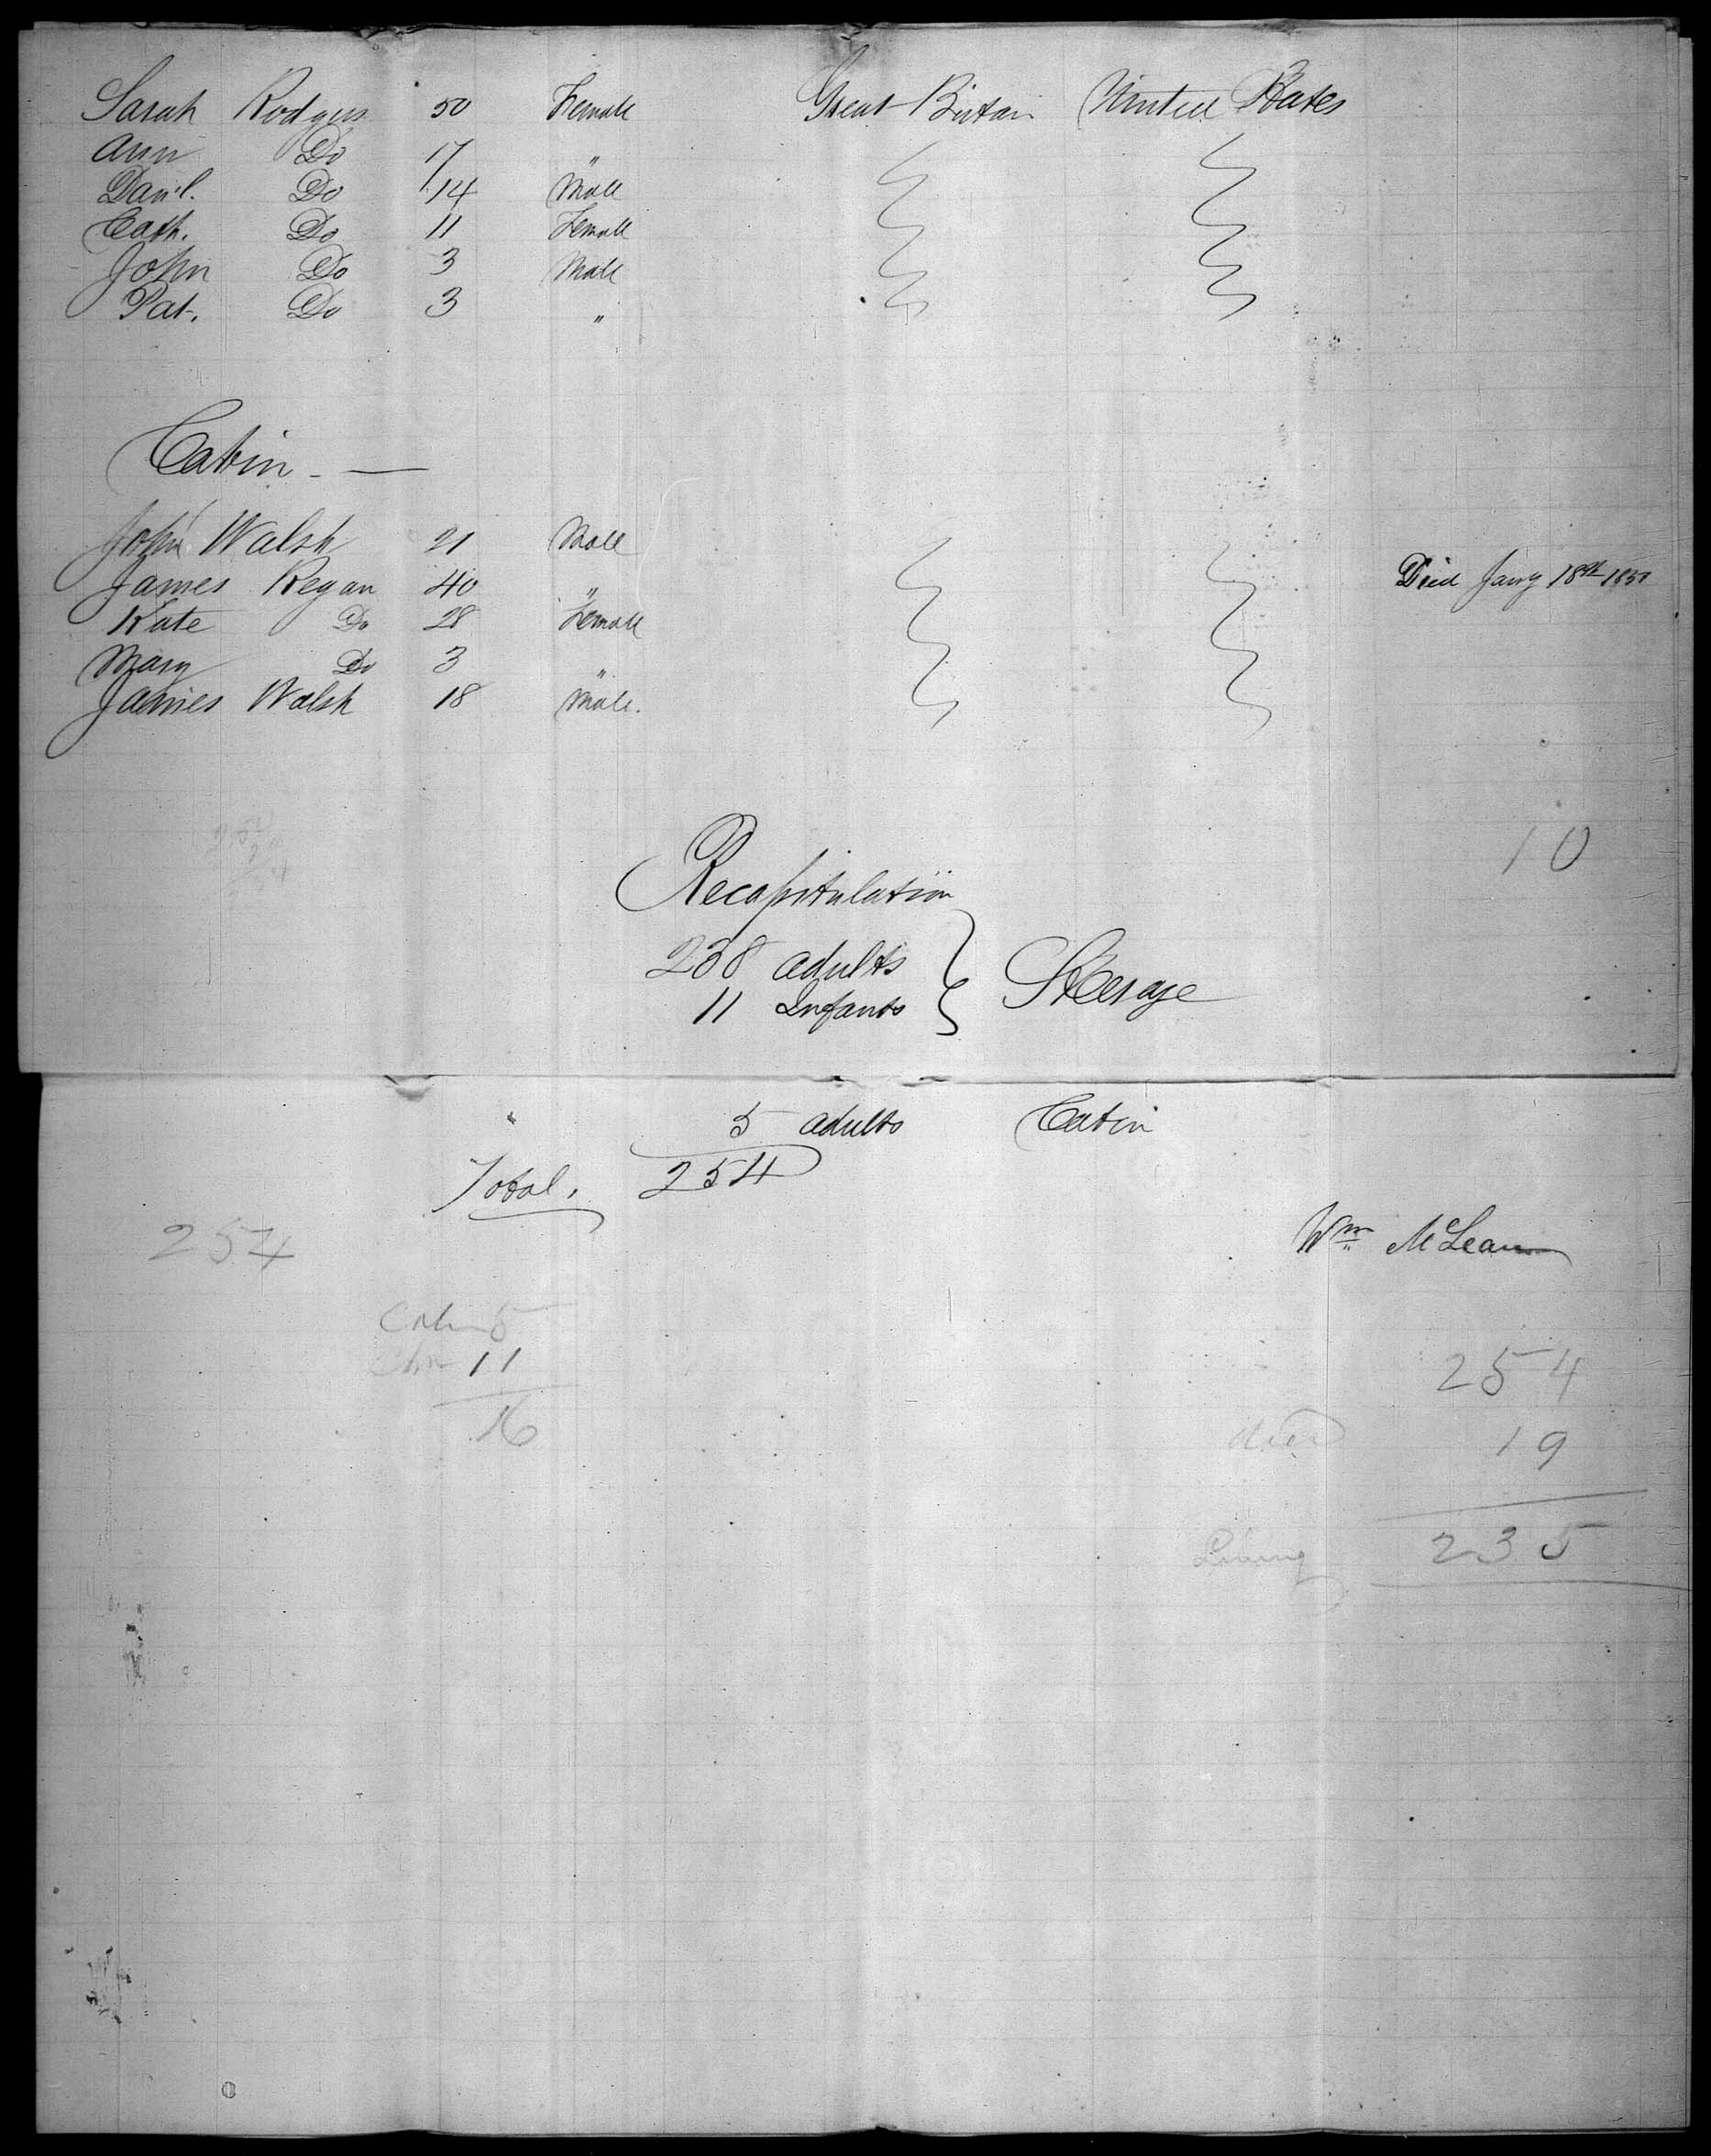 Sarah Rodgers 50 Female Great Britain United States
Ann Do 17 "
Danl. Do 14 Male
Cath. Do 11 Female
John Do 3 Male
Pat. Do 3 "
Cabin - —
John Walsh 21 Male
James Regan 40 " Died Jany 18th
Kate Do 28 Female
Mary Do 3 "
James Walsh 18 Male.
10
Recapitulation
238 adults
11 Infants } Sterage
5 adults Cabin
Total. 254
Wm McLean
254
Cabin 5
11
16
254
died 19
Living 235